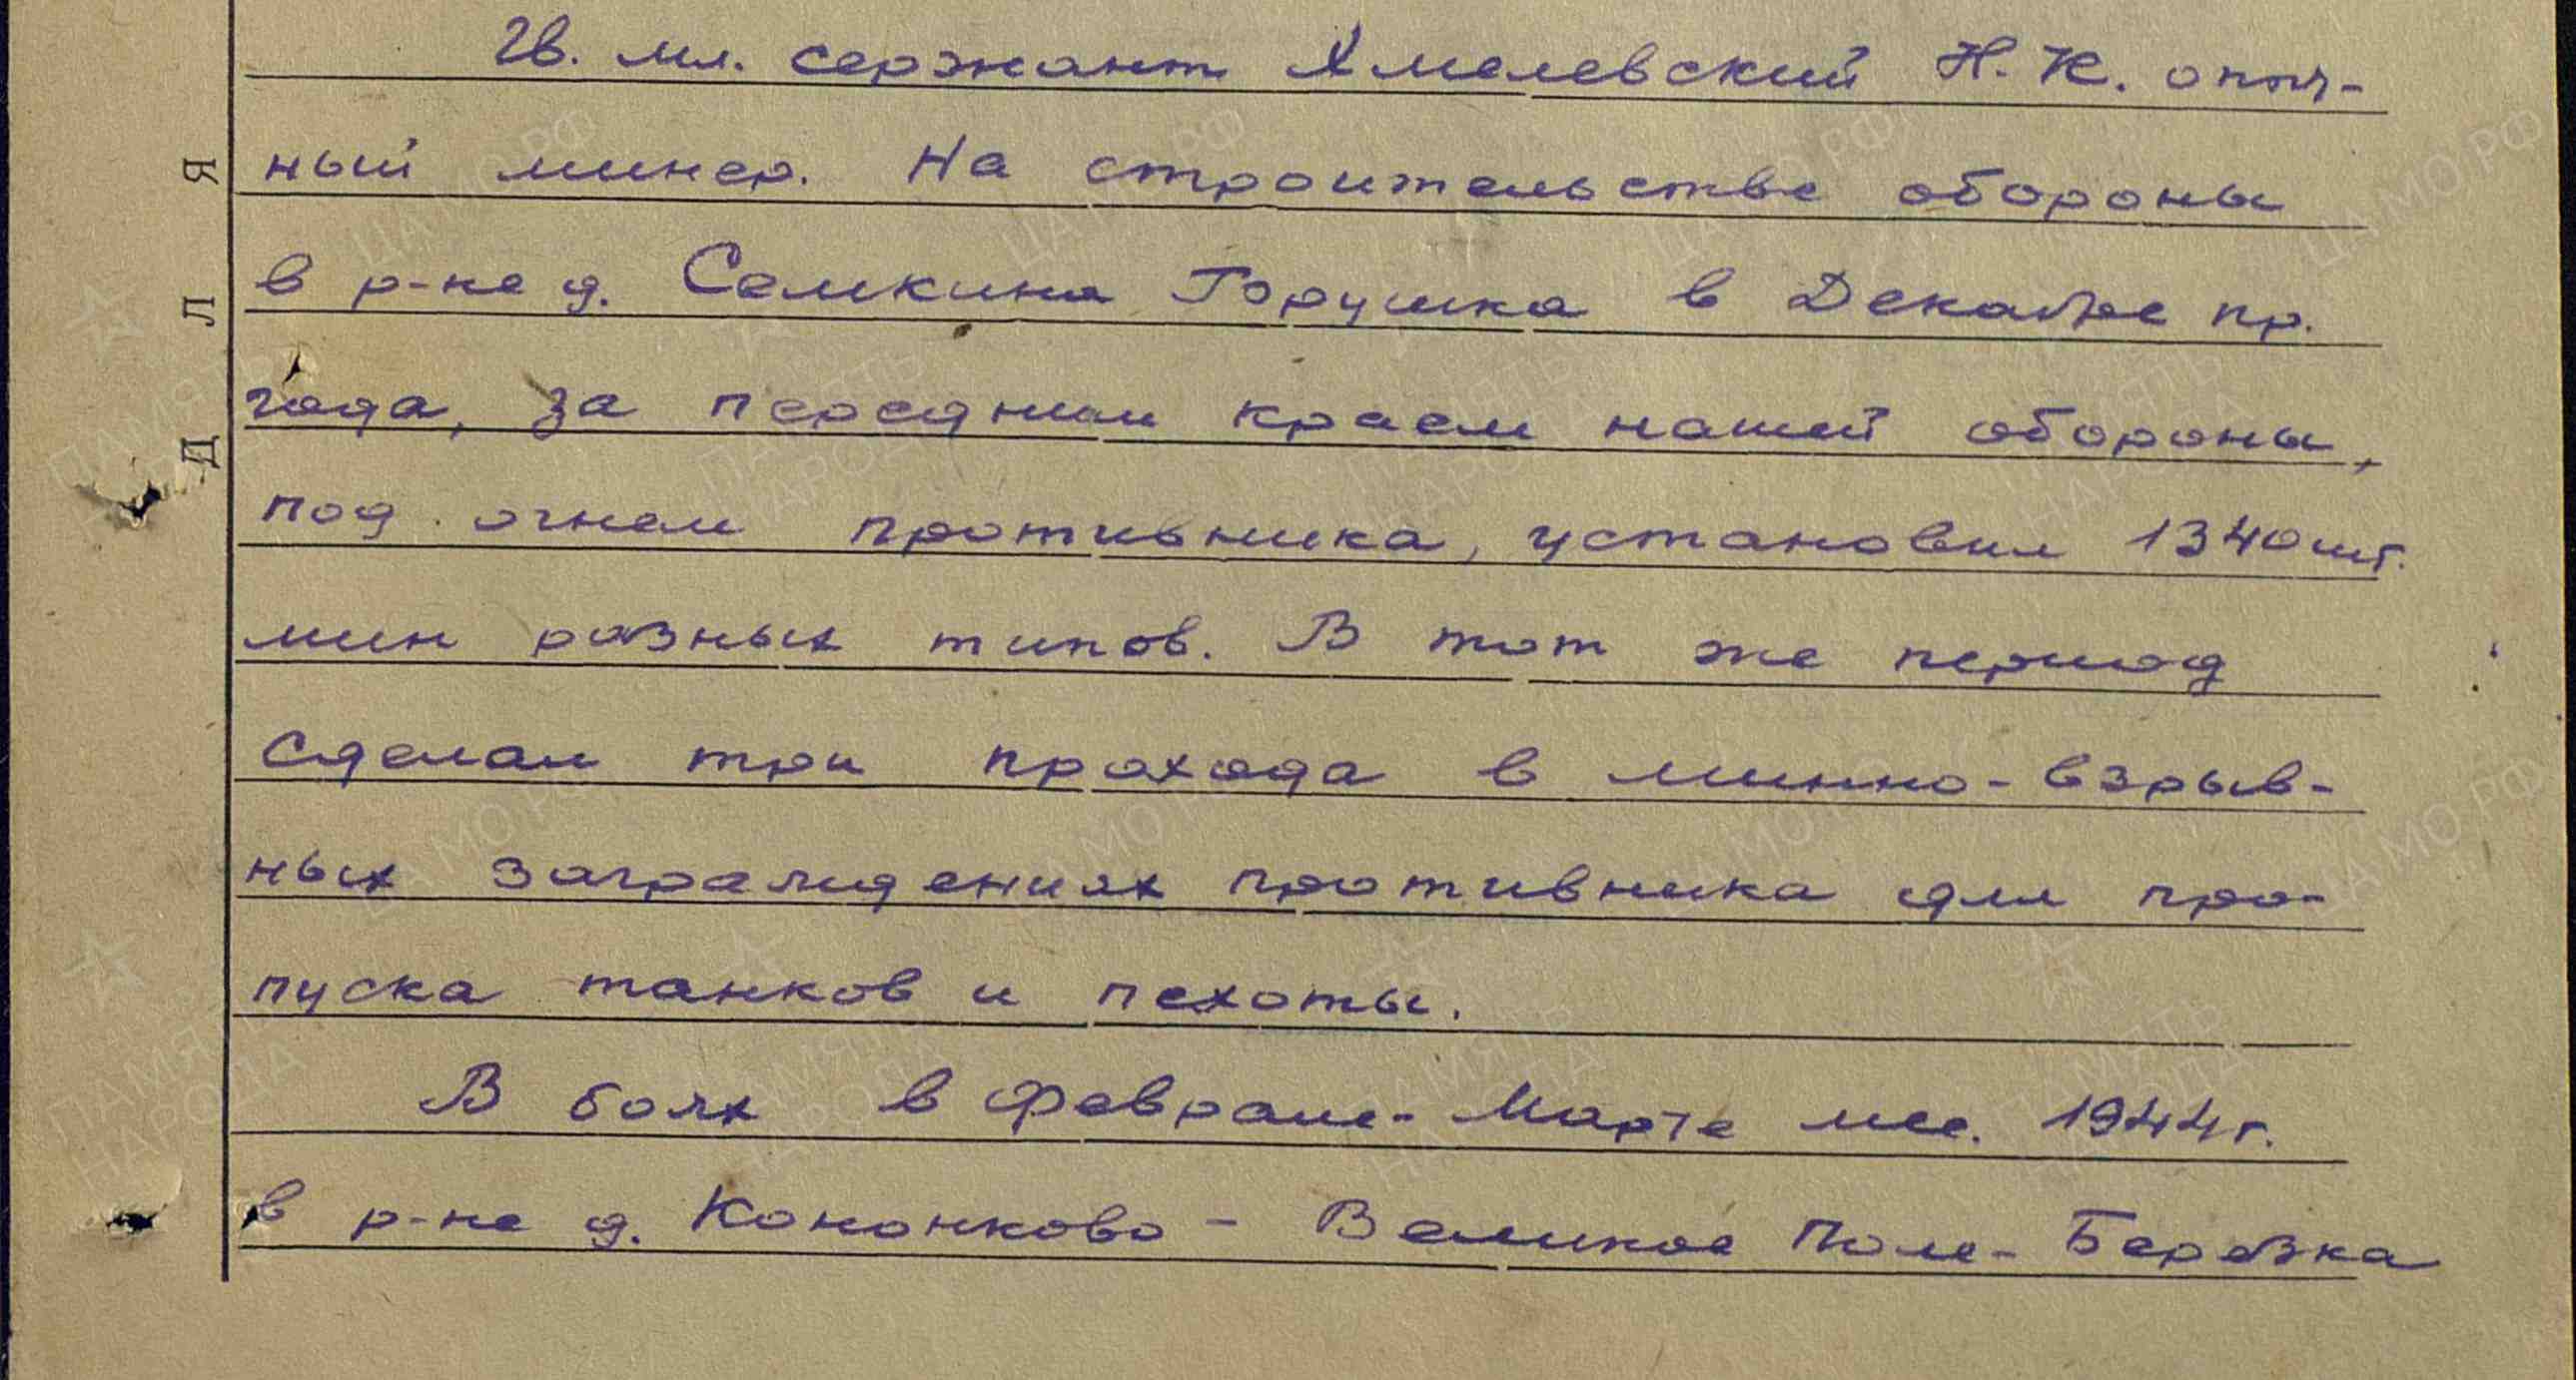 Гв. мл. сержант Хмелевский Н.К. опыт-
ный минер. На строительстве обороны
в р-не д. Семкина Горушка в Декабре пр.
года, за передним краем нашей обороны,
под огнем противника, установил 1340 шт.
мин разных типов. В тот же период
сделал три прохода в минно-взрыв-
ных заграждениях противника для про-
пуска танков и пехоты.
В боях в Феврале-Марте мес. 1944 г.
в р-не д. Кононково - Великое Поле - Березка
Д Л Я
ПАМЯТЬ
НАРОДА
ЦА МО РФ